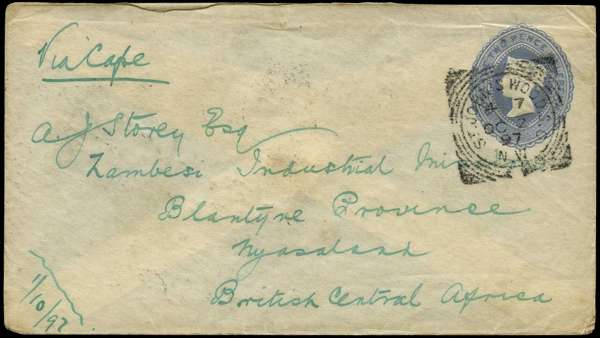 Via Cape
A J Storey Esq
Zambesi Industrial
Blantyre Province
Nyasaland
British Central Africa
1/10/97
ST JOHN'S WOOD
7
OC 97
N.W.